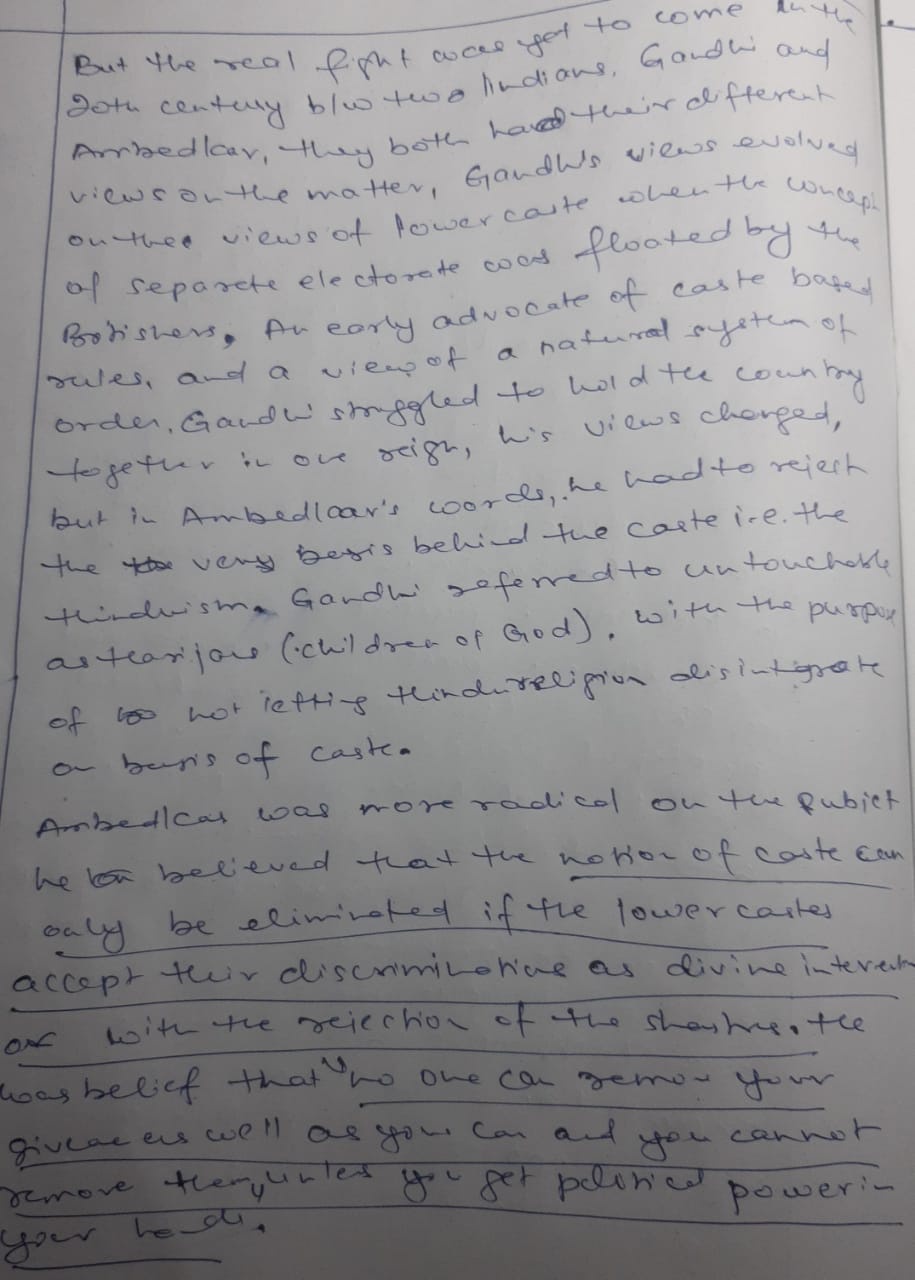 But the real fight was yet to come in the
20th century b/w two Indians, Gandhi and
Ambedkar, they both had their different
views on the matter, Gandhi's views evolved
on the views of lower caste when the concept
of separete electorate was floated by the
Britishers. An early advocate of caste based
rules, and a view of a natural system of
order, Gandhi struggled to hold the country
together in one reign, his views changed,
but in Ambedkar's words, he had to reject
the very basis behind the caste i.e. the
Hinduism. Gandhi referred to untouchable
as Harijans (children of God). With the purpose
of not letting Hindu religion disintegrate
on basis of caste.
Ambedkar was more radical on the subject
he believed that the notion of caste can
only be eliminated if the lower castes
accept their discrimination as divine intervention
or with the rejection of the shastras. He
was belief that "no one can remov your
grivances as well as you can and you cannot
remove them, unless you get political power in
your hands.